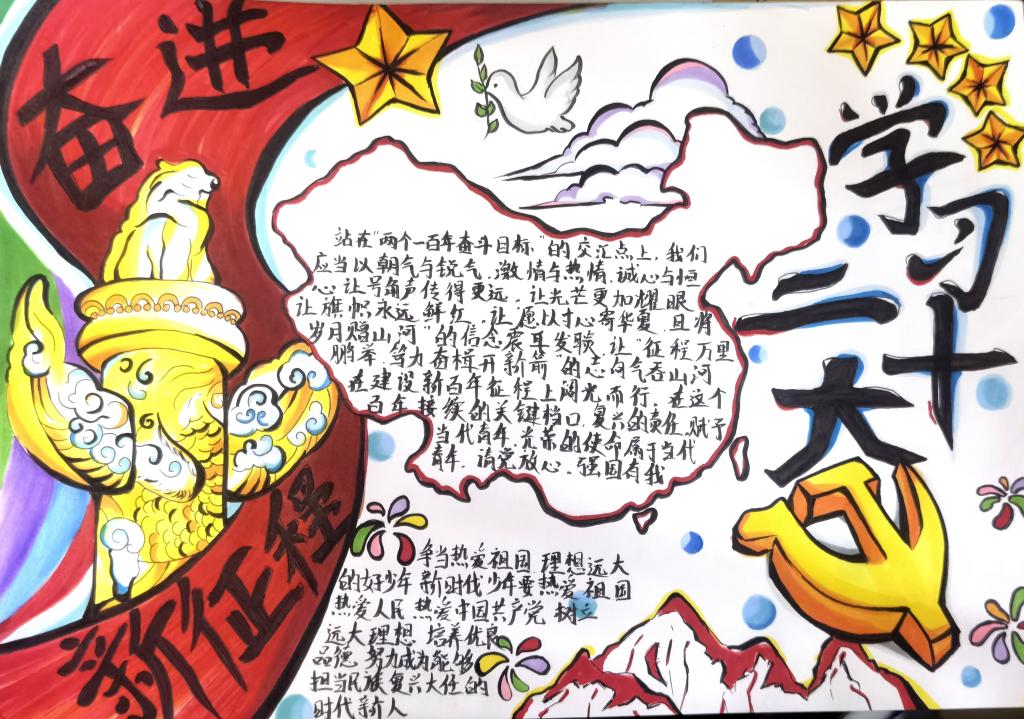 奋进
新征程
学习
二十
大
站在"两个一百年奋斗目标"的交汇点上,我们
应当以朝气与锐气,激情与热情,诚心与恒
心让号角声传得更远,让光芒更加耀眼
让旗帜永远鲜红,让"愿以寸心寄华夏,且将
岁月赠山河"的信念震耳发聩,让"征程万里
鹏举,努力奋楫开新篇"的志向气吞山河
在建设新百年征程上闪光而行,在这个
百年接续的关键档口,复兴的责任,赋予
当代青年,光荣的使命属于当代
青年,请党放心,强国有我
争当热爱祖国 理想远大
的好少年 新时代少年要热爱祖国
热爱人民 热爱中国共产党 树立
远大理想 培养优良
品德 努力成为能够
担当民族复兴大任的
时代新人